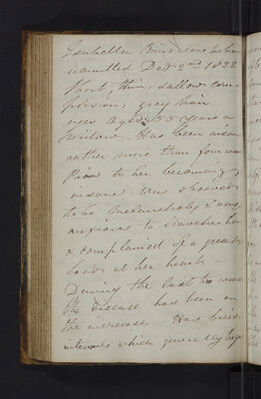 admitted Decr 2nd 1822
Short, thin, sallow com=
plexion, grey hair
aged 55 years a
Widow. Has been insane
rather more than four
Prior to her becoming
insane was observed
to be melancholy & very
anxious to
& complained of a great
load at her heart.
During the last two
the disease has been on
the increase. Has lucid
intervals which generally